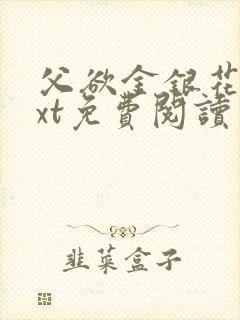 父欲金銀花
xt免費閱讀
韭菜盒子